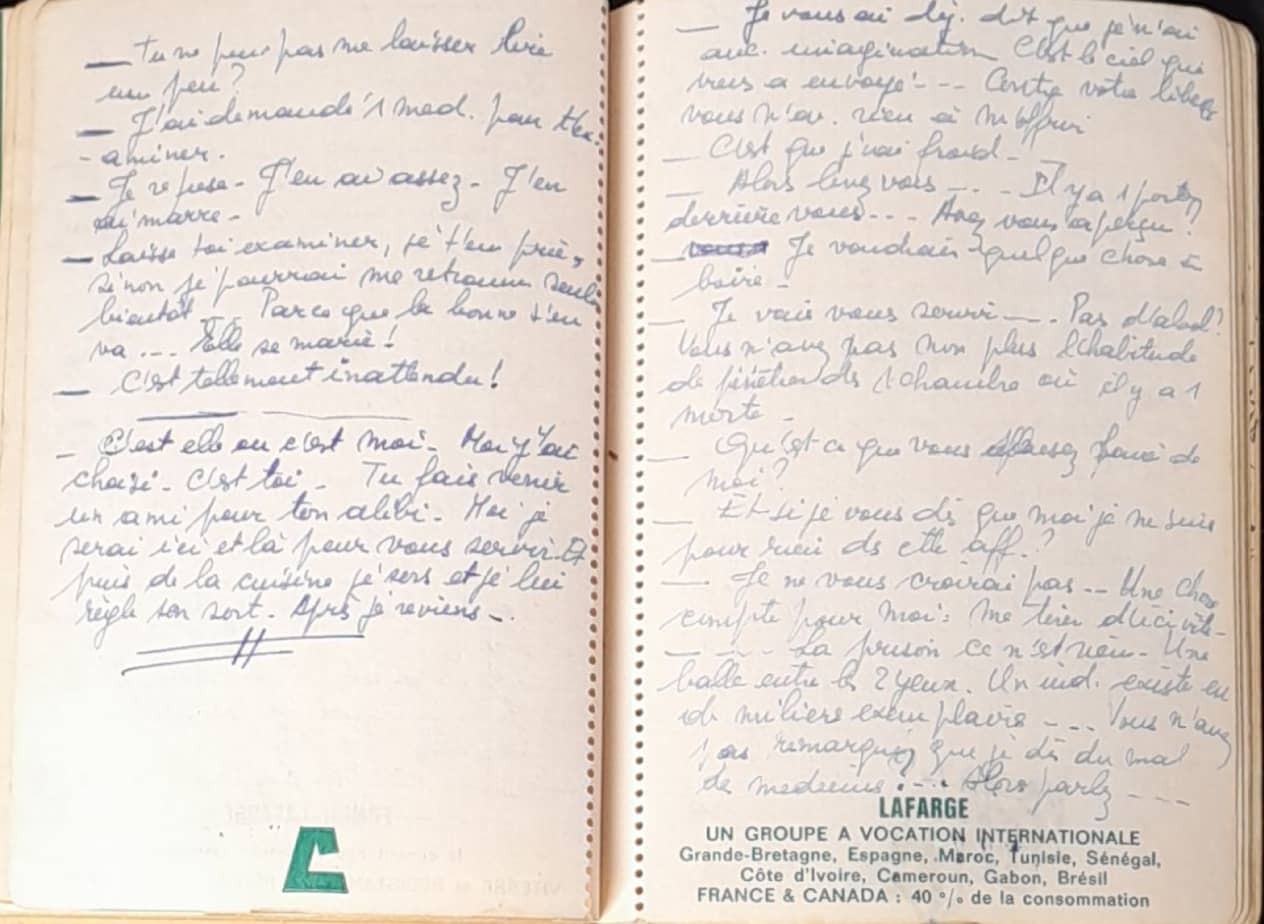 — Tu ne peux pas me laisser lire
un peu?
— J'ai demandé 1 med. pour t'ex-
-aminer.
— Je refuse - J'en ai assez - J'en
ai marre -
— Laisse toi examiner, je t'en prie,
sinon je pourrai me retrouver seule
bientôt ... Parce que la bonne s'en
va ... Elle se marie!
— C'est tellement inattendu!
— C'est elle ou c'est moi - Moi j'ai
choisi - C'est toi - Tu fais venir
un ami pour ton alibi - Moi je
serai ici et là pour vous servir. Et
puis de la cuisine je sors et je lui
règle son sort. Après je reviens -.
— Je vous ai dj. dit que je n'ai
auc. imagination C'est le ciel qui
vous a envoyé - - - Contre votre liberté
vous n'av. rien à m'offrir
— C'est que j'ai froid -
— Alors levez vous - . . - Il y a 1 porte
derrière vous - - - Avez vous aperçu?
— Je voudrais quelque chose à
boire -
— Je vais vous servir - - -. Pas d'alcool?
Vous n'avez pas non plus l'habitude
de pénétrer ds 1 chambre où il y a 1
morte -
— Qu'est ce que vous faire de
moi?
— Et si je vous dis que moi je ne suis
pour rien ds cette aff.?
— Je ne vous croirai pas - - Une chose
compte pour moi: me tirer d'ici vite -
— - - - La prison ce n'est rien - Une
balle entre les 2 yeux. Un ind. existe en
de miliers exemplaires - - - Vous n'avez
pas remarquez que je dis du mal
de medecins . - . . Alors parlez - - -
LAFARGE
UN GROUPE A VOCATION INTERNATIONALE
Grande-Bretagne, Espagne, Maroc, Tunisie, Sénégal,
Côte d'Ivoire, Cameroun, Gabon, Brésil
FRANCE & CANADA : 40 % de la consommation